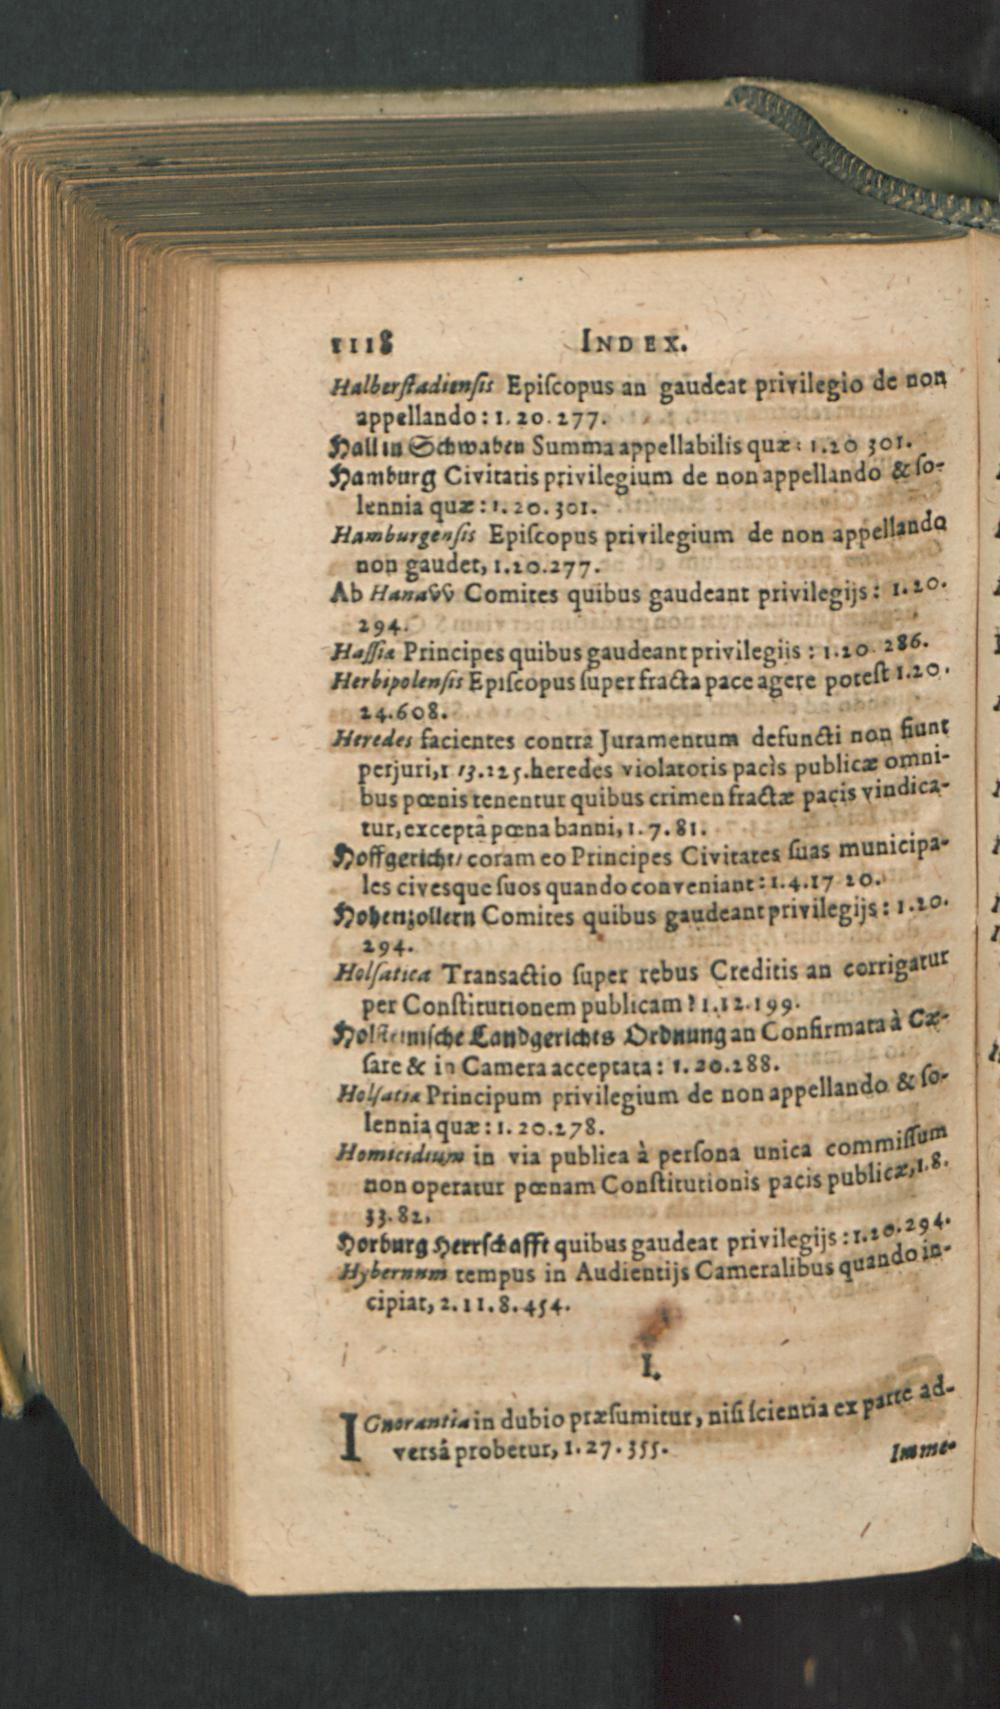 1118 INDEX.
Halberſtadienſis Epiſcopus an gaudeat privilegio de non
appellando: 1. 20. 277.
Hall in Schwaben Summa appellabilis quæ: 1.20 301.
Hamburg Civitatis privilegium de non appellando & ſo-
lennia quæ: 1. 20. 301.
Hamburgenſis Epiſcopus privilegium de non appellando
non gaudet, 1.20.277.
Ab Hanavv Comites quibus gaudeant privilegijs: 1. 20.
294.
Haſſiæ Principes quibus gaudeant privilegiis: 1.20. 286.
Herbipolenſis Epiſcopus ſuper fracta pace agere poteſt 1.20.
24.608.
Heredes facientes contra Juramentum defuncti non fiunt
perjuri, 1 13.125. heredes violatoris pacis publicæ omni-
bus pœnis tenentur quibus crimen fractæ pacis vindica-
tur, exceptâ pœna banni, 1. 7. 81.
Hoffgericht/ coram eo Principes Civitates ſuas municipa-
les civesque ſuos quando conveniant: 1.4.17 20.
Hohenzollern Comites quibus gaudeant privilegijs: 1.20.
294.
Holſatica Transactio ſuper rebus Creditis an corrigatur
per Conſtitutionem publicam? 1.12.199.
Holſteiniſche Landgerichts Ordnung an Confirmata à Cæ-
ſare & in Camera acceptata: 1. 20.288.
Holſatiæ Principum privilegium de non appellando & ſo-
lennia quæ: 1. 20.278.
Homicidium in via publica à perſona unica commiſſum
non operatur pœnam Conſtitutionis pacis publicæ, 1.8.
33.82,
Horburg Herrſchafft quibus gaudeat privilegijs: 1.20.294.
Hybernum tempus in Audientijs Cameralibus quando in-
cipiat, 2.11.8.454.
I.
IGnorantia in dubio præſumitur, niſi ſcientia ex parte ad-
versâ probetur, 1. 27. 355.
Imme-